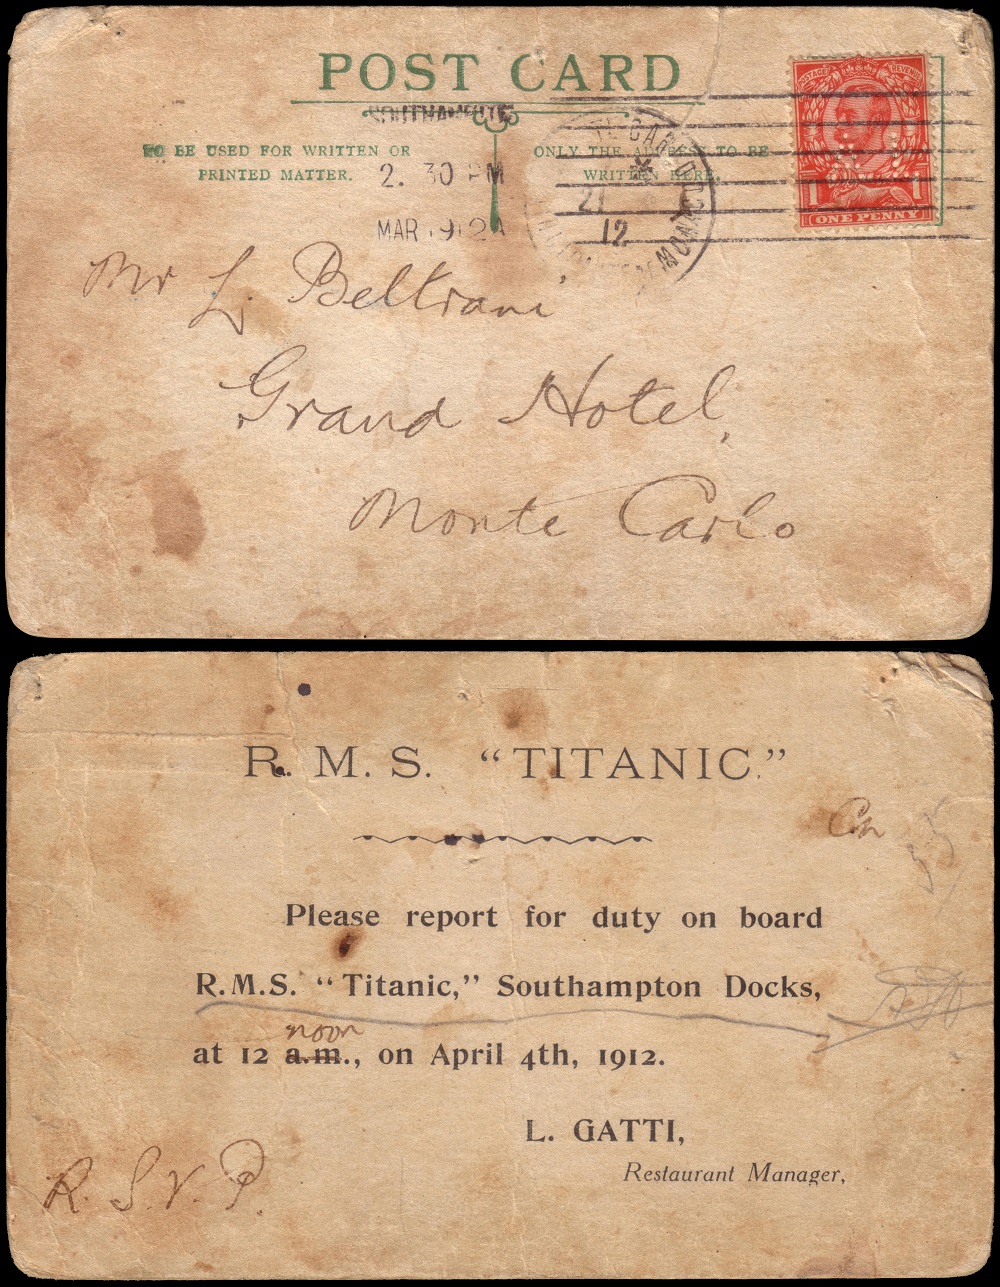 POST CARD
TO BE USED FOR WRITTEN OR
PRINTED MATTER.
ONLY THE ADDRESS TO BE
WRITTEN HERE.
2. 30 PM
MAR 1912
21
12
POSTAGE
REVENUE
1
1
ONE PENNY
Mr L. Beltrami
Grand Hotel,
Monte Carlo
R. M. S. "TITANIC."
Please report for duty on board
R.M.S. "Titanic," Southampton Docks,
noon
at 12 a.m., on April 4th, 1912.
L. GATTI,
Restaurant Manager,
R. S. V. P.